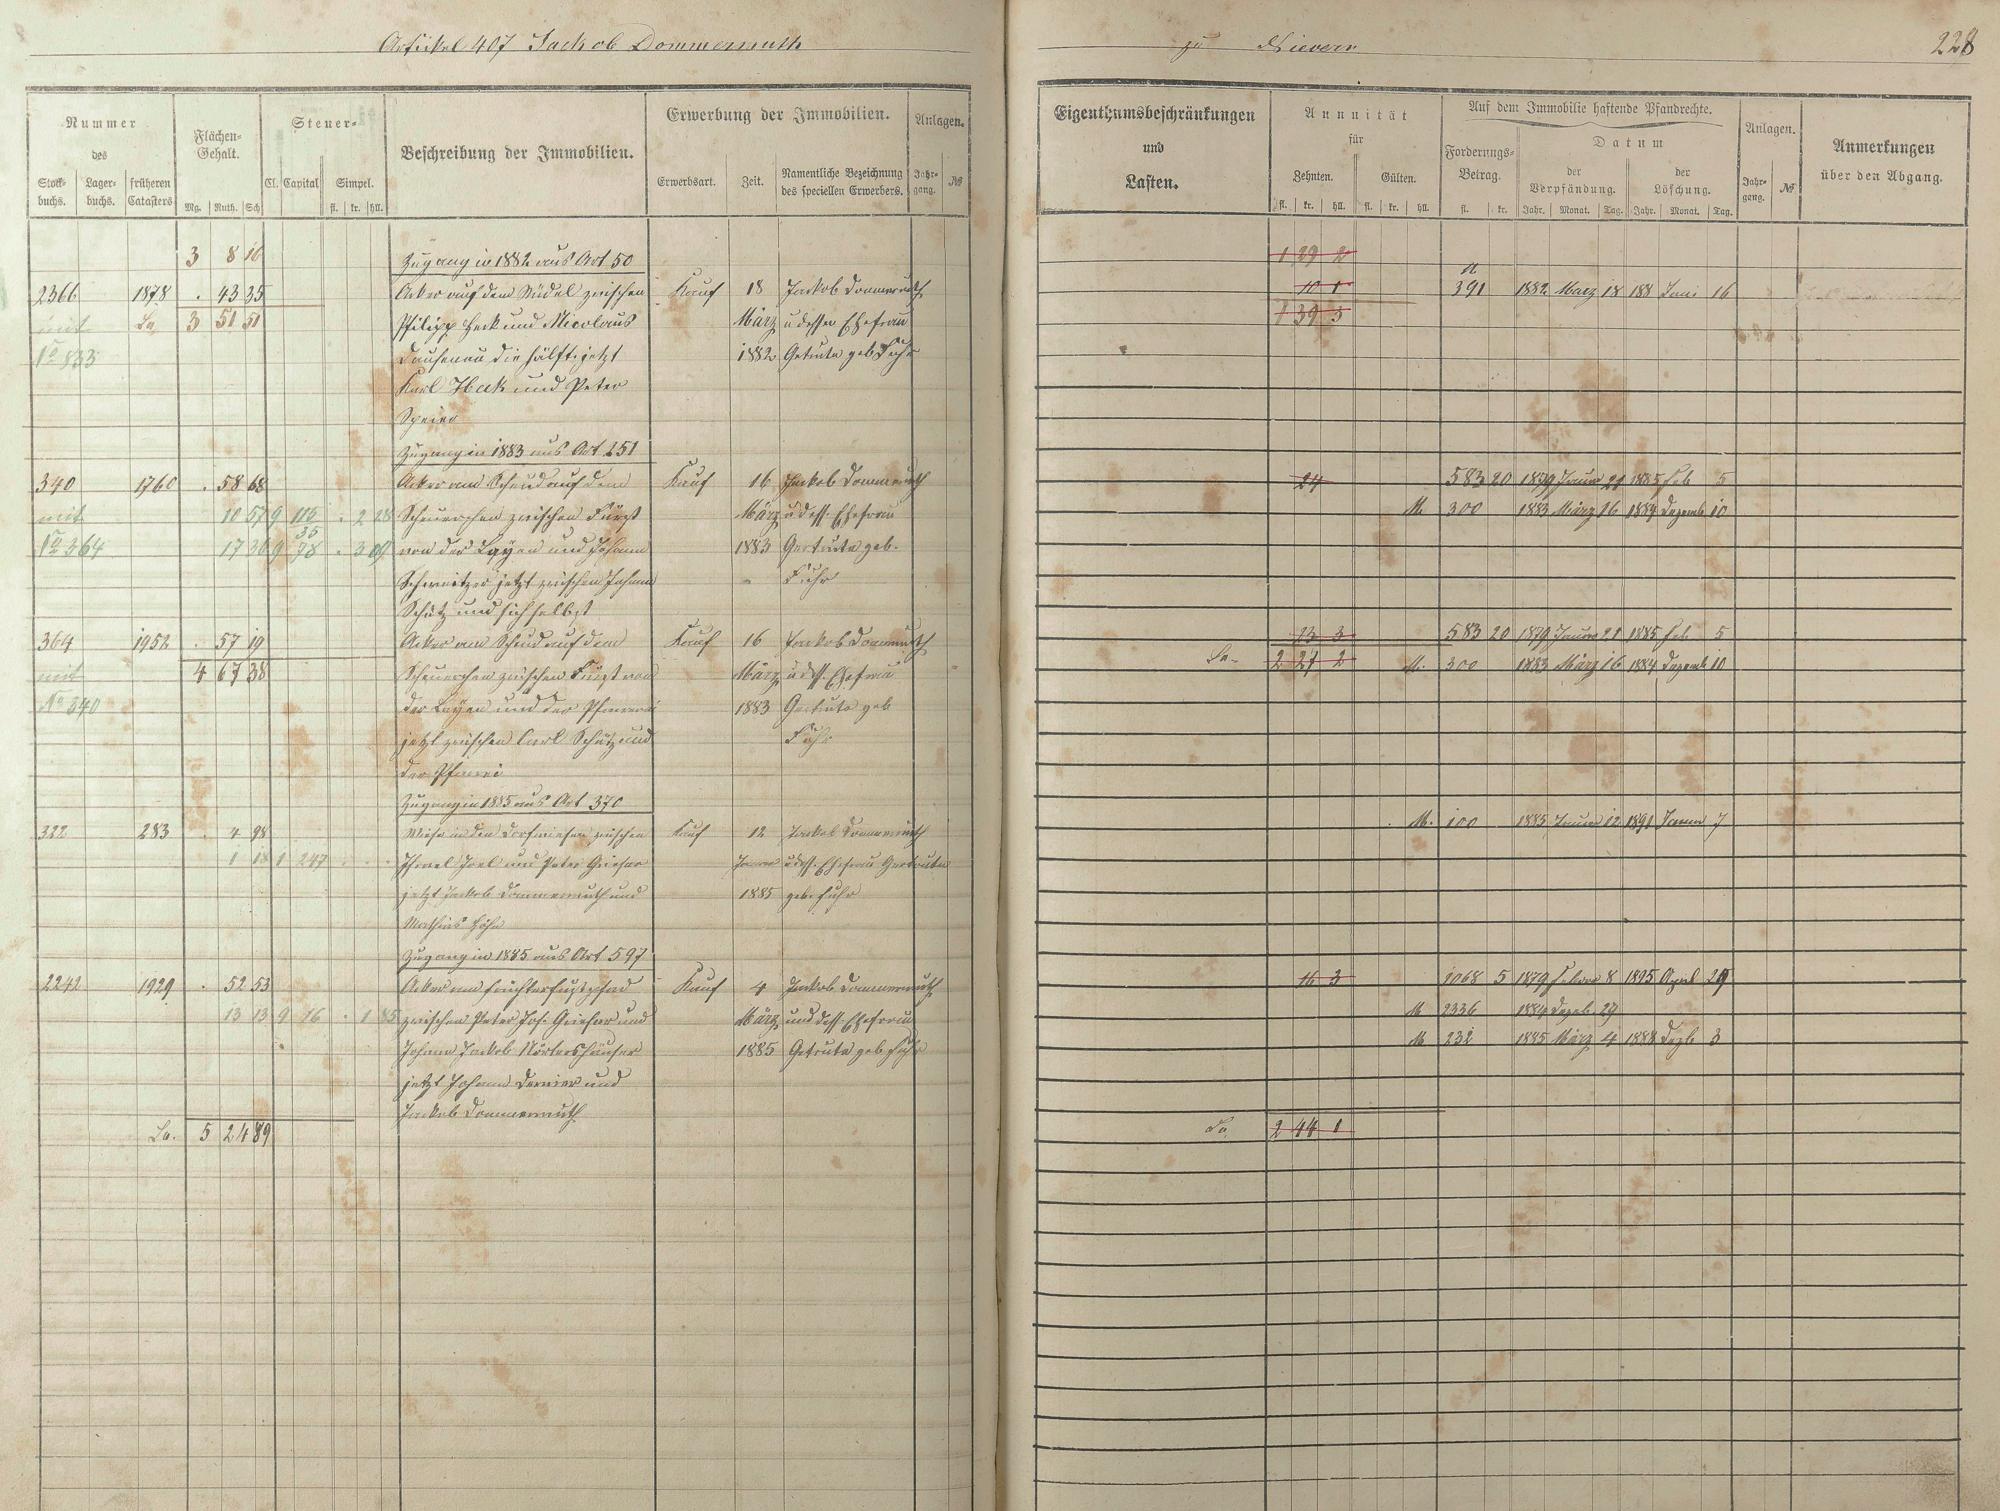 Artickel 407 Jackob Dommermuth
zu Nievern
228
Nummer
des
Stock-buchs. Lager-buchs. früheren Catasters
Flächen-Gehalt.
Mg. Ruth. Sch
Steuer-
Cl. Capital Simpel.
fl. kr. hll.
Beschreibung der Immobilien.
Erwerbung der Immobilien.
Erwerbsart. Zeit. Namentliche Bezeichnung des speciellen Erwerbers.
Anlagen.
Jahr-gang. №
Eigenthumsbeschränkungen
und
Lasten.
Annuität
für
Zehnten. Gülten.
fl. kr. hll. fl. kr. hll.
Auf dem Immobilie haftende Pfandrechte.
Forderungs-Betrag.
fl. kr.
Datum
der Verpfändung. der Löschung.
Jahr. Monat. Tag. Jahr. Monat. Tag.
Anlagen.
Jahr-gang. №
Anmerkungen
über den Abgang.
3 8 16 Zugang in 1882 aus Art 50 1 29 2
2366 1878 . 43 35 Acker auf dem zwischen Kauf 18 Jackob Dommermuth 10 1 391 1882 März 18 188 Juni 16
mit La 3 51 51 Philipp Heck und Nicolaus März u dessen Ehefrau 1 39 3
No 833 Dausenau die Hälfte jetzt 1882 Getruta geb Fuhr
Karl und Peter
Speier
Zugang in 1883 aus Art 251
340 1760 . 58 68 Acker am auf dem Kauf 16 Jackob Dommermuth 24 583 20 1879 Januar 21 1885 Feb 5
mit 10 57 9 116 . 2 28 Scheuerchen zwischen Fürst März u dess. Ehefrau M. 300 1883 März 16 1884 Dezemb 10
35
No 364 17 30 9 . 3 von der Layen und Johann 1883 Gertruta geb.
Schweitzer jetzt zwischen Johann Fuhr
Schütz und sich selbst
364 1952 . 57 19 Acker am auf dem Kauf 16 Jackob Dommermuth 23 3 583 20 1879 Januar 21 1885 Feb 5
mit 4 67 38 Scheuerchen zwischen Fürst von März u dess. Ehefrau La. 2 27 2 M. 300 1883 März 16 1884 Dezemb 10
No 340 der Layen und der Pfarrei 1883 Gertruta geb
jetzt zwischen Carl Schütz und Fuhr
der Pfarrei
Zugang in 1885 aus Art 370
322 283 . 4 98 Wiese in den Dorfwiesen zwischen Kauf 12 Jackob Dommermuth M. 100 1885 Januar 12 1891 Januar 7
1 1 247 Joel und Peter Januar u dess. Ehefrau Gertruta
jetzt Jackob Dommermuth und 1885 geb. Fuhr
Mathias Höhn
Zugang in 1885 aus Art 597
2242 1929 . 52 53 Acker am Kauf 4 Jackob Dommermuth 16 3 1068 5 1879 Februar 8 1895 April 29
13 13 9 76 . 1 85 zwischen Peter Jos. und März und dess. Ehefrau M 2336 1884 Dezeb 29
Johann Jackob Nörtershäuser 1885 Getruta geb Fuhr M 232 1885 März 4 1888 Dezb 3
jetzt Johann und
Jackob Dommermuth
La. 5 24 89 La 2 44 1